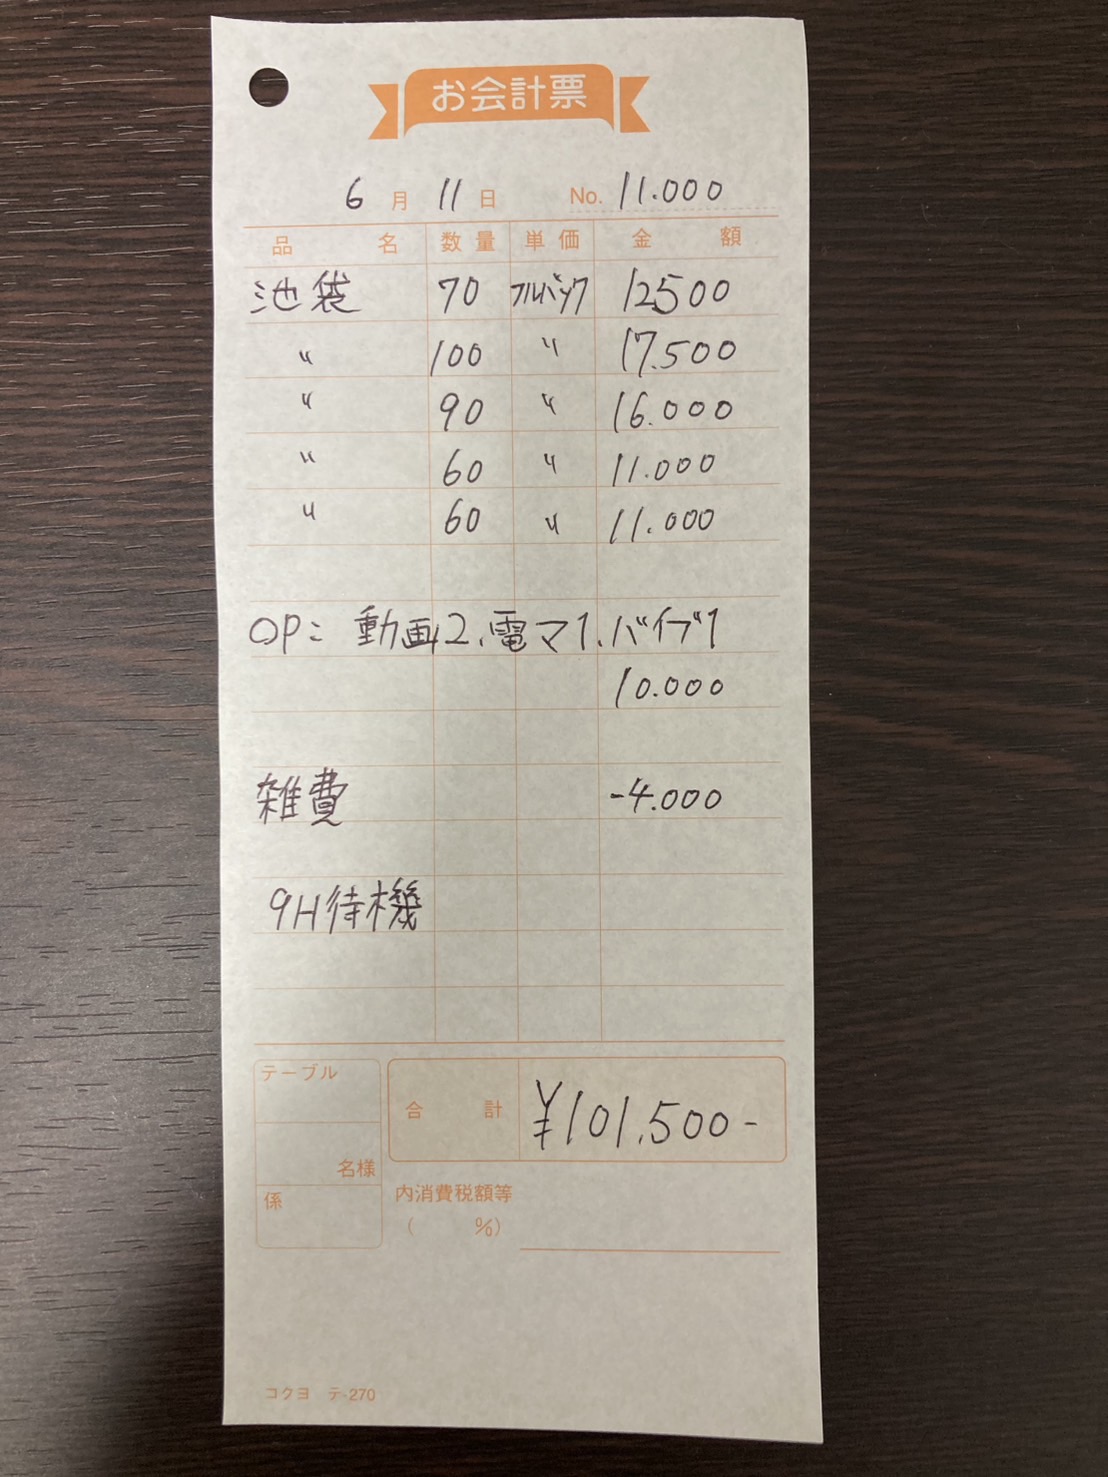 お会計票
6月11日 No. 11.000
品名 数量 単価 金額
池袋 70 フルバック 12500
〃 100 〃 17.500
〃 90 〃 16.000
〃 60 〃 11.000
〃 60 〃 11.000
OP: 動画2、電マ1、バイブ1
10.000
雑費 -4.000
9H待機
テーブル
名様
係
合計 ¥101,500-
内消費税額等
( %)
コクヨ テ-270